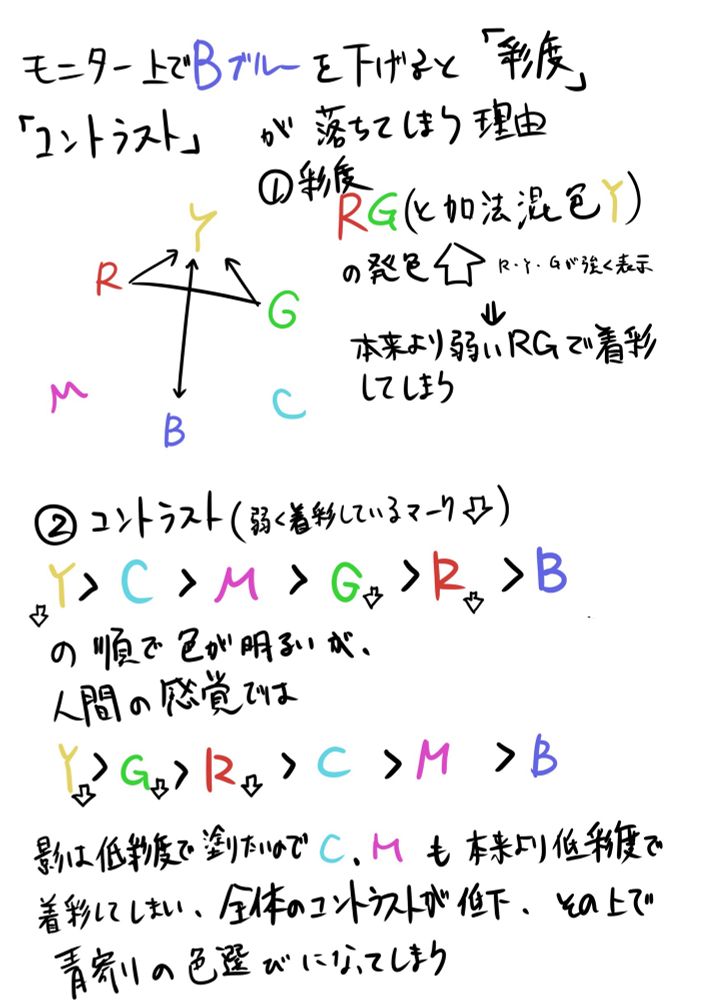 モニター上でBブルーを下げると「彩度」
「コントラスト」が落ちてしまう理由
①彩度
RG(と加法混色Y)
の発色⇧ R・Y・Gが強く表示
⇓
本来より弱いRGで着彩
してしまう
Y
R
G
M
C
B
②コントラスト(弱く着彩しているマーク⇩)
⇩Y>C>M>G⇩>R⇩>B
の順で色が明るいが、
人間の感覚では
Y⇩>G⇩>R⇩>C>M>B
影は低彩度で塗りたいのでC、Mも本来より低彩度で
着彩してしまい、全体のコントラストが低下、その上で
青寄りの色選びになってしまう